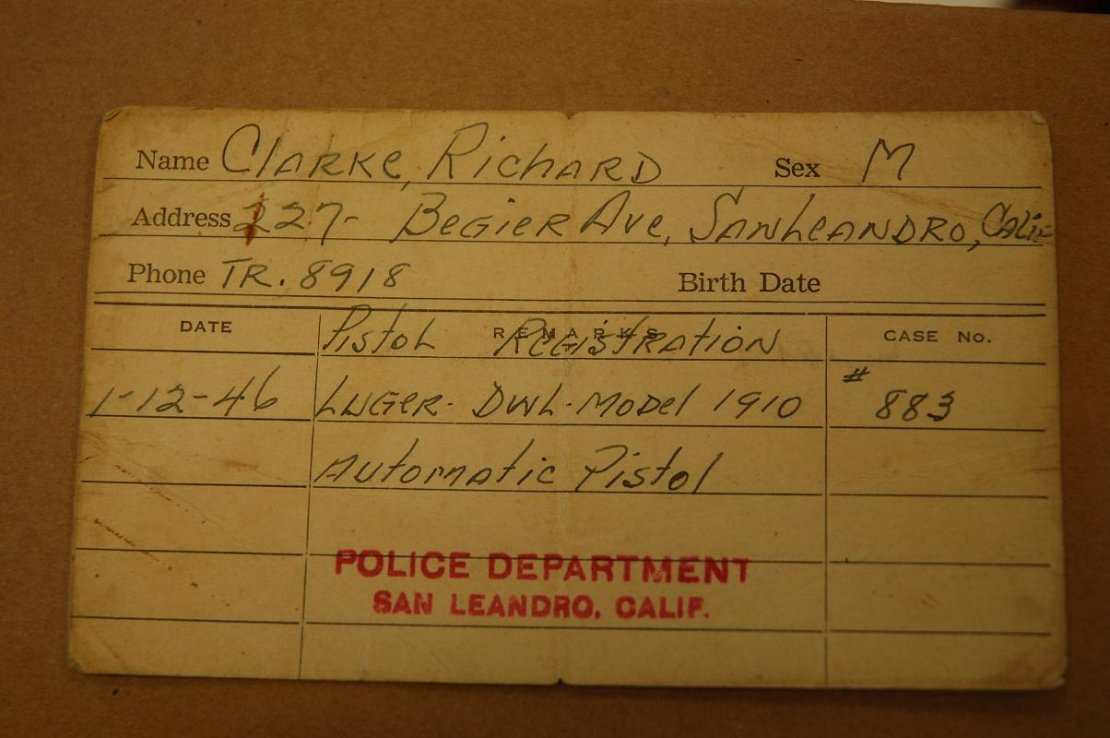 Name Clarke, Richard Sex M
Address 227- Begier Ave, San Leandro, Calif
Phone TR. 8918 Birth Date
DATE REMARKS CASE No.
Pistol Registration
1-12-46 Luger- DWL-Model 1910 # 883
Automatic Pistol
POLICE DEPARTMENT
SAN LEANDRO, CALIF.